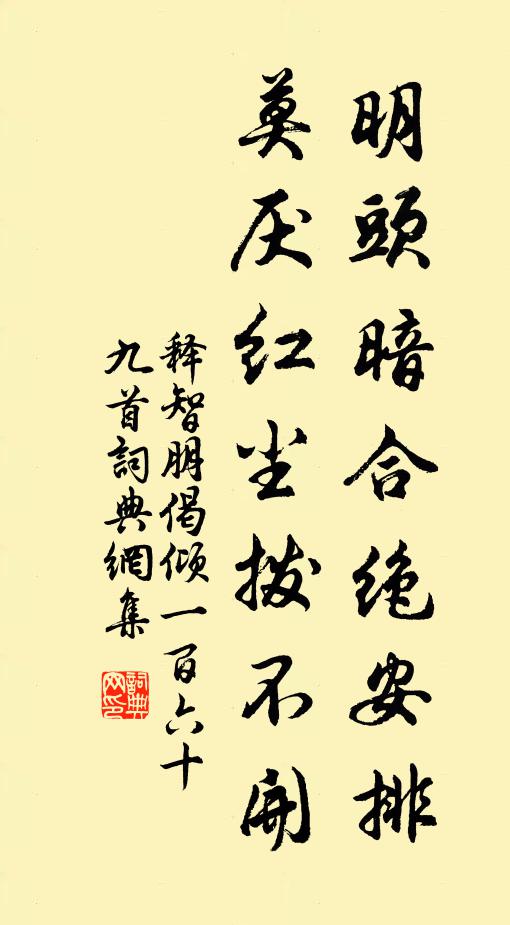 明頭暗合绝安排
莫厌红尘拨不開
释智朋偈倾一百六十
九首詞典網集
詞典
网印